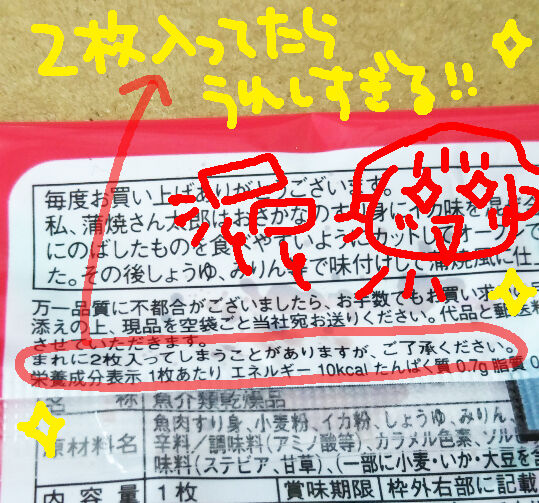 2枚入ってたら
うれしすぎる!!
毎度お買い上げありがとうございます。
私、蒲焼さん太郎はおさかなのすり身にイカ味を混ぜ
にのばしたものを食べやすいようにカットしてオーブンで
た。その後しょうゆ、みりん等で味付けして蒲焼風に仕上
万一品質に不都合がございましたら、お手数でもお買い求め
添えの上、現品を空袋ごと当社宛お送りください。代品と郵送料
させていただきます。
まれに2枚入ってしまうことがありますが、ご了承ください。
栄養成分表示 1枚あたり エネルギー 10kcal たんぱく質 0.7g 脂質
名 称 魚介類乾燥品
原材料名 魚肉すり身、小麦粉、イカ粉、しょうゆ、みりん、
辛料/調味料(アミノ酸等)、カラメル色素、ソル
味料(ステビア、甘草)、(一部に小麦・いか・大豆を含
内 容 量 1枚 賞味期限 枠外右部に記載